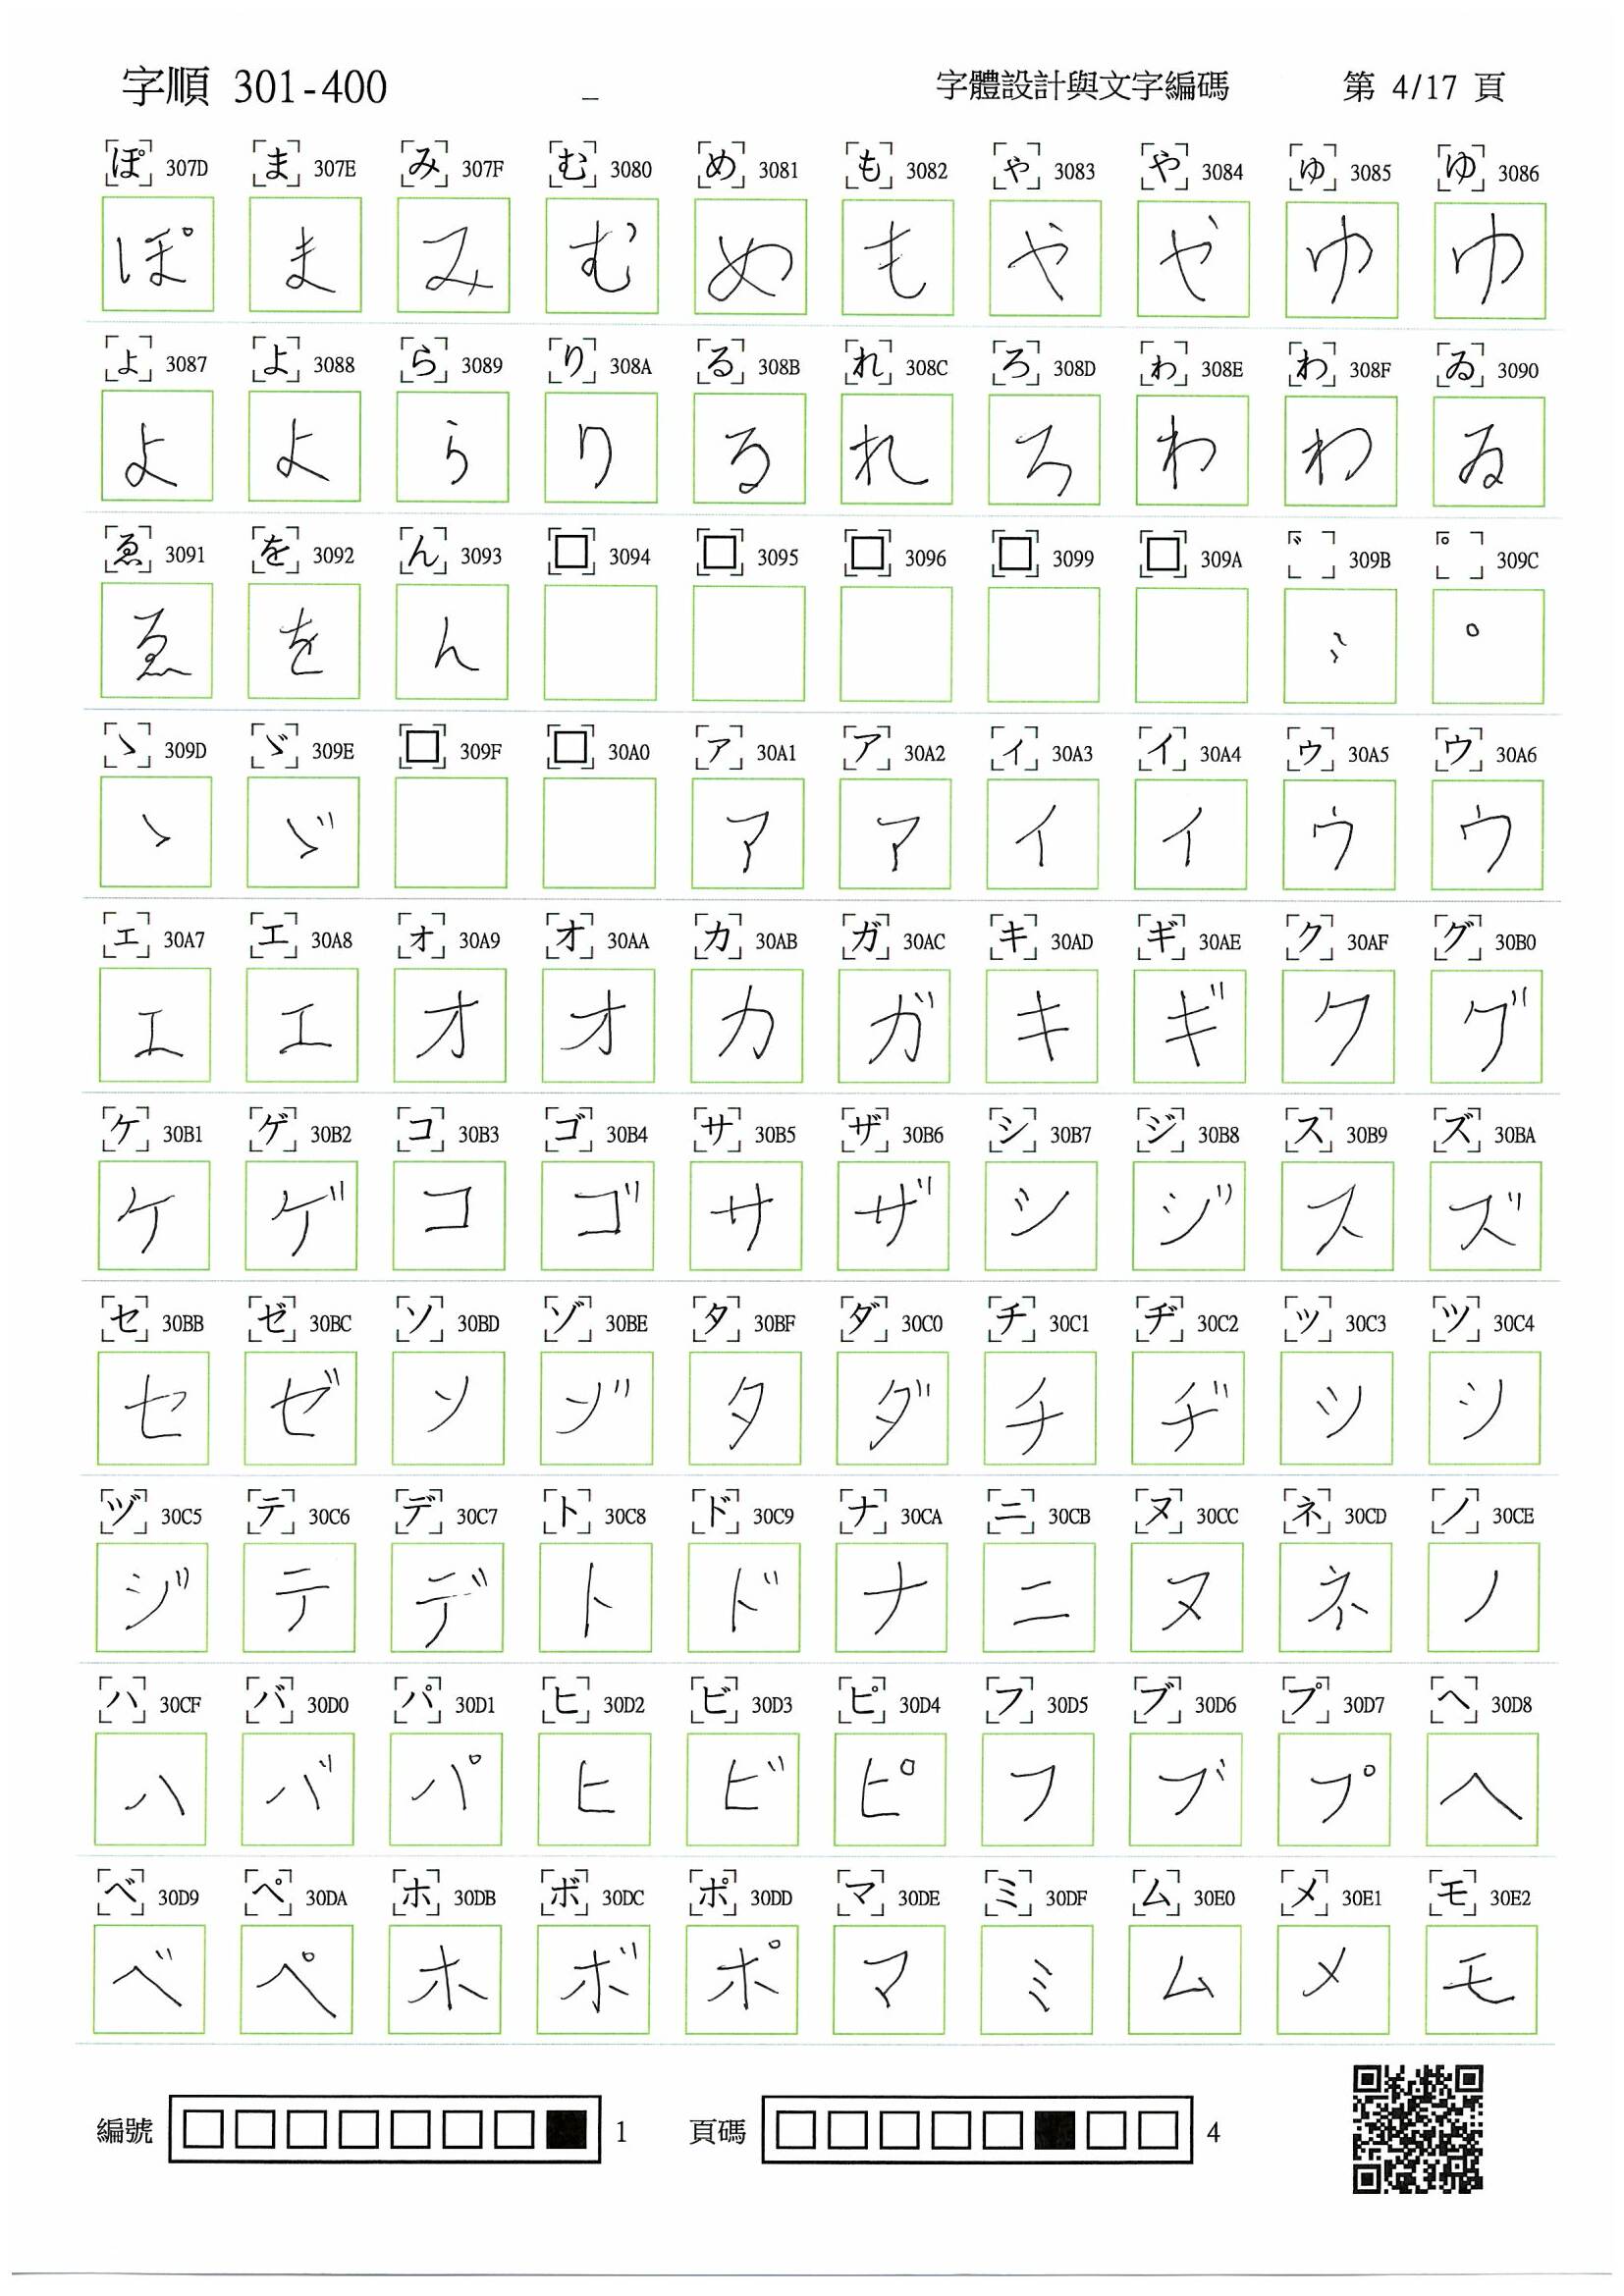 字順 301-400 _ 字體設計與文字編碼 第 4/17 頁
ぽ 307D ま 307E み 307F む 3080 め 3081 も 3082 ゃ 3083 や 3084 ゅ 3085 ゆ 3086
ぽ ま み む め も や や ゆ ゆ
ょ 3087 よ 3088 ら 3089 り 308A る 308B れ 308C ろ 308D ゎ 308E わ 308F ゐ 3090
よ よ ら り る れ ろ わ わ ゐ
ゑ 3091 を 3092 ん 3093 □ 3094 □ 3095 □ 3096 □ 3099 □ 309A ゛ 309B ゜ 309C
ゑ を ん ゛ ゜
ゝ 309D ゞ 309E □ 309F □ 30A0 ァ 30A1 ア 30A2 ィ 30A3 イ 30A4 ゥ 30A5 ウ 30A6
ゝ ゞ ア ア イ イ ウ ウ
ェ 30A7 エ 30A8 ォ 30A9 オ 30AA カ 30AB ガ 30AC キ 30AD ギ 30AE ク 30AF グ 30B0
エ エ オ オ カ ガ キ ギ ク グ
ケ 30B1 ゲ 30B2 コ 30B3 ゴ 30B4 サ 30B5 ザ 30B6 シ 30B7 ジ 30B8 ス 30B9 ズ 30BA
ケ ゲ コ ゴ サ ザ シ ジ ス ズ
セ 30BB ゼ 30BC ソ 30BD ゾ 30BE タ 30BF ダ 30C0 チ 30C1 ヂ 30C2 ッ 30C3 ツ 30C4
セ ゼ ソ ゾ タ ダ チ ヂ ツ シ
ヅ 30C5 テ 30C6 デ 30C7 ト 30C8 ド 30C9 ナ 30CA ニ 30CB ヌ 30CC ネ 30CD ノ 30CE
ジ テ デ ト ド ナ ニ ヌ ネ ノ
ハ 30CF バ 30D0 パ 30D1 ヒ 30D2 ビ 30D3 ピ 30D4 フ 30D5 ブ 30D6 プ 30D7 ヘ 30D8
ハ バ パ ヒ ビ ピ フ ブ プ ヘ
ベ 30D9 ペ 30DA ホ 30DB ボ 30DC ポ 30DD マ 30DE ミ 30DF ム 30E0 メ 30E1 モ 30E2
ベ ペ ホ ボ ポ マ ミ ム メ モ
編號 □□□□□□□■ 1 頁碼 □□□□□■□□ 4